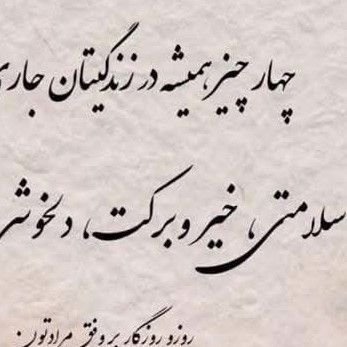 چهار چیز همیشه در زندگیتان جاری
سلامتی، خیر و برکت، دلخوشی
روز و روزگار بر وفق مرادتون.